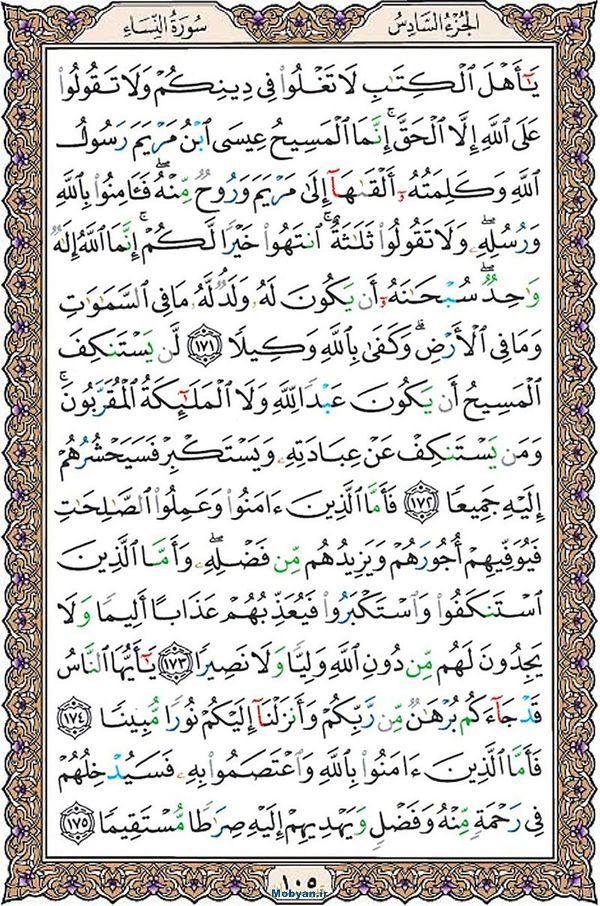 الجزء السادس
سورة النساء
يَٰٓأَهۡلَ ٱلۡكِتَٰبِ لَا تَغۡلُوا۟ فِي دِينِكُمۡ وَلَا تَقُولُوا۟
عَلَى ٱللَّهِ إِلَّا ٱلۡحَقَّۚ إِنَّمَا ٱلۡمَسِيحُ عِيسَى ٱبۡنُ مَرۡيَمَ رَسُولُ
ٱللَّهِ وَكَلِمَتُهُۥٓ أَلۡقَىٰهَآ إِلَىٰ مَرۡيَمَ وَرُوحٞ مِّنۡهُۖ فَـَٔامِنُوا۟ بِٱللَّهِ
وَرُسُلِهِۦۖ وَلَا تَقُولُوا۟ ثَلَٰثَةٌۚ ٱنتَهُوا۟ خَيۡرٗا لَّكُمۡۚ إِنَّمَا ٱللَّهُ إِلَٰهٞ
وَٰحِدٞۖ سُبۡحَٰنَهُۥٓ أَن يَكُونَ لَهُۥ وَلَدٞۘ لَّهُۥ مَا فِي ٱلسَّمَٰوَٰتِ
وَمَا فِي ٱلۡأَرۡضِۗ وَكَفَىٰ بِٱللَّهِ وَكِيلٗا ١٧١ لَّن يَسۡتَنكِفَ
ٱلۡمَسِيحُ أَن يَكُونَ عَبۡدٗا لِّلَّهِ وَلَا ٱلۡمَلَٰٓئِكَةُ ٱلۡمُقَرَّبُونَۚ
وَمَن يَسۡتَنكِفۡ عَنۡ عِبَادَتِهِۦ وَيَسۡتَكۡبِرۡ فَسَيَحۡشُرُهُمۡ
إِلَيۡهِ جَمِيعٗا ١٧٢ فَأَمَّا ٱلَّذِينَ ءَامَنُوا۟ وَعَمِلُوا۟ ٱلصَّٰلِحَٰتِ
فَيُوَفِّيهِمۡ أُجُورَهُمۡ وَيَزِيدُهُم مِّن فَضۡلِهِۦۖ وَأَمَّا ٱلَّذِينَ
ٱسۡتَنكَفُوا۟ وَٱسۡتَكۡبَرُوا۟ فَيُعَذِّبُهُمۡ عَذَابًا أَلِيمٗا وَلَا
يَجِدُونَ لَهُم مِّن دُونِ ٱللَّهِ وَلِيّٗا وَلَا نَصِيرٗا ١٧٣ يَٰٓأَيُّهَا ٱلنَّاسُ
قَدۡ جَآءَكُم بُرۡهَٰنٞ مِّن رَّبِّكُمۡ وَأَنزَلۡنَآ إِلَيۡكُمۡ نُورٗا مُّبِينٗا ١٧٤
فَأَمَّا ٱلَّذِينَ ءَامَنُوا۟ بِٱللَّهِ وَٱعۡتَصَمُوا۟ بِهِۦ فَسَيُدۡخِلُهُمۡ
فِي رَحۡمَةٖ مِّنۡهُ وَفَضۡلٖ وَيَهۡدِيهِمۡ إِلَيۡهِ صِرَٰطٗا مُّسۡتَقِيمٗا ١٧٥
١٠٥
Mobyan.ir